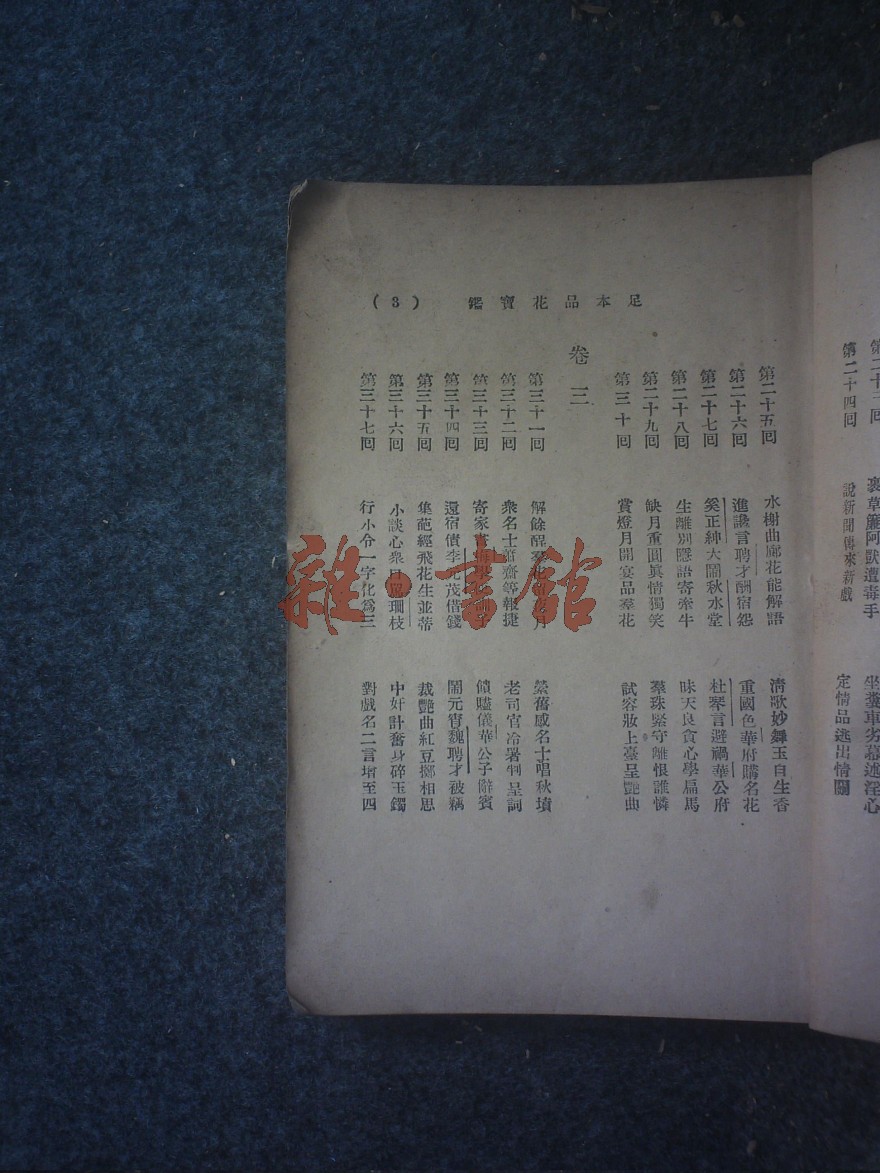 第二十四回 說新聞傳來新戲 定情品逃出情關
足本品花寶鑑 (3)
第二十五回 水榭曲廊花能解語 清歌妙舞玉自生香
第二十六回 進讒言聘才酬宿怨 重國色華府購名花
第二十七回 奚正紳大鬧秋水堂 杜琴言避禍華公府
第二十八回 生離別隱語寄牽牛 昧天良貪心學扁馬
第二十九回 缺月重圓眞情獨笑 羣珠緊守離恨誰憐
第三十回 賞燈月開宴品羣花 試容妝上臺呈艷曲
卷三
第三十一回 解餘酲 月 縈舊感名士唱秋墳
第三十二回 衆名士蕭齋等報捷 老司官冷署判呈詞
第三十三回 寄家書 儀華公子辭賓
第三十四回 還宿債李元茂借錢 鬧元宵魏聘才被竊
第三十五回 集葩經飛花生並蒂 裁艷曲紅豆擲相思
第三十六回 小談心衆口 珊枝 中奸計奮身碎玉鐲
第三十七回 行小令一字化爲三 對戲名二言增至四
雜·書館